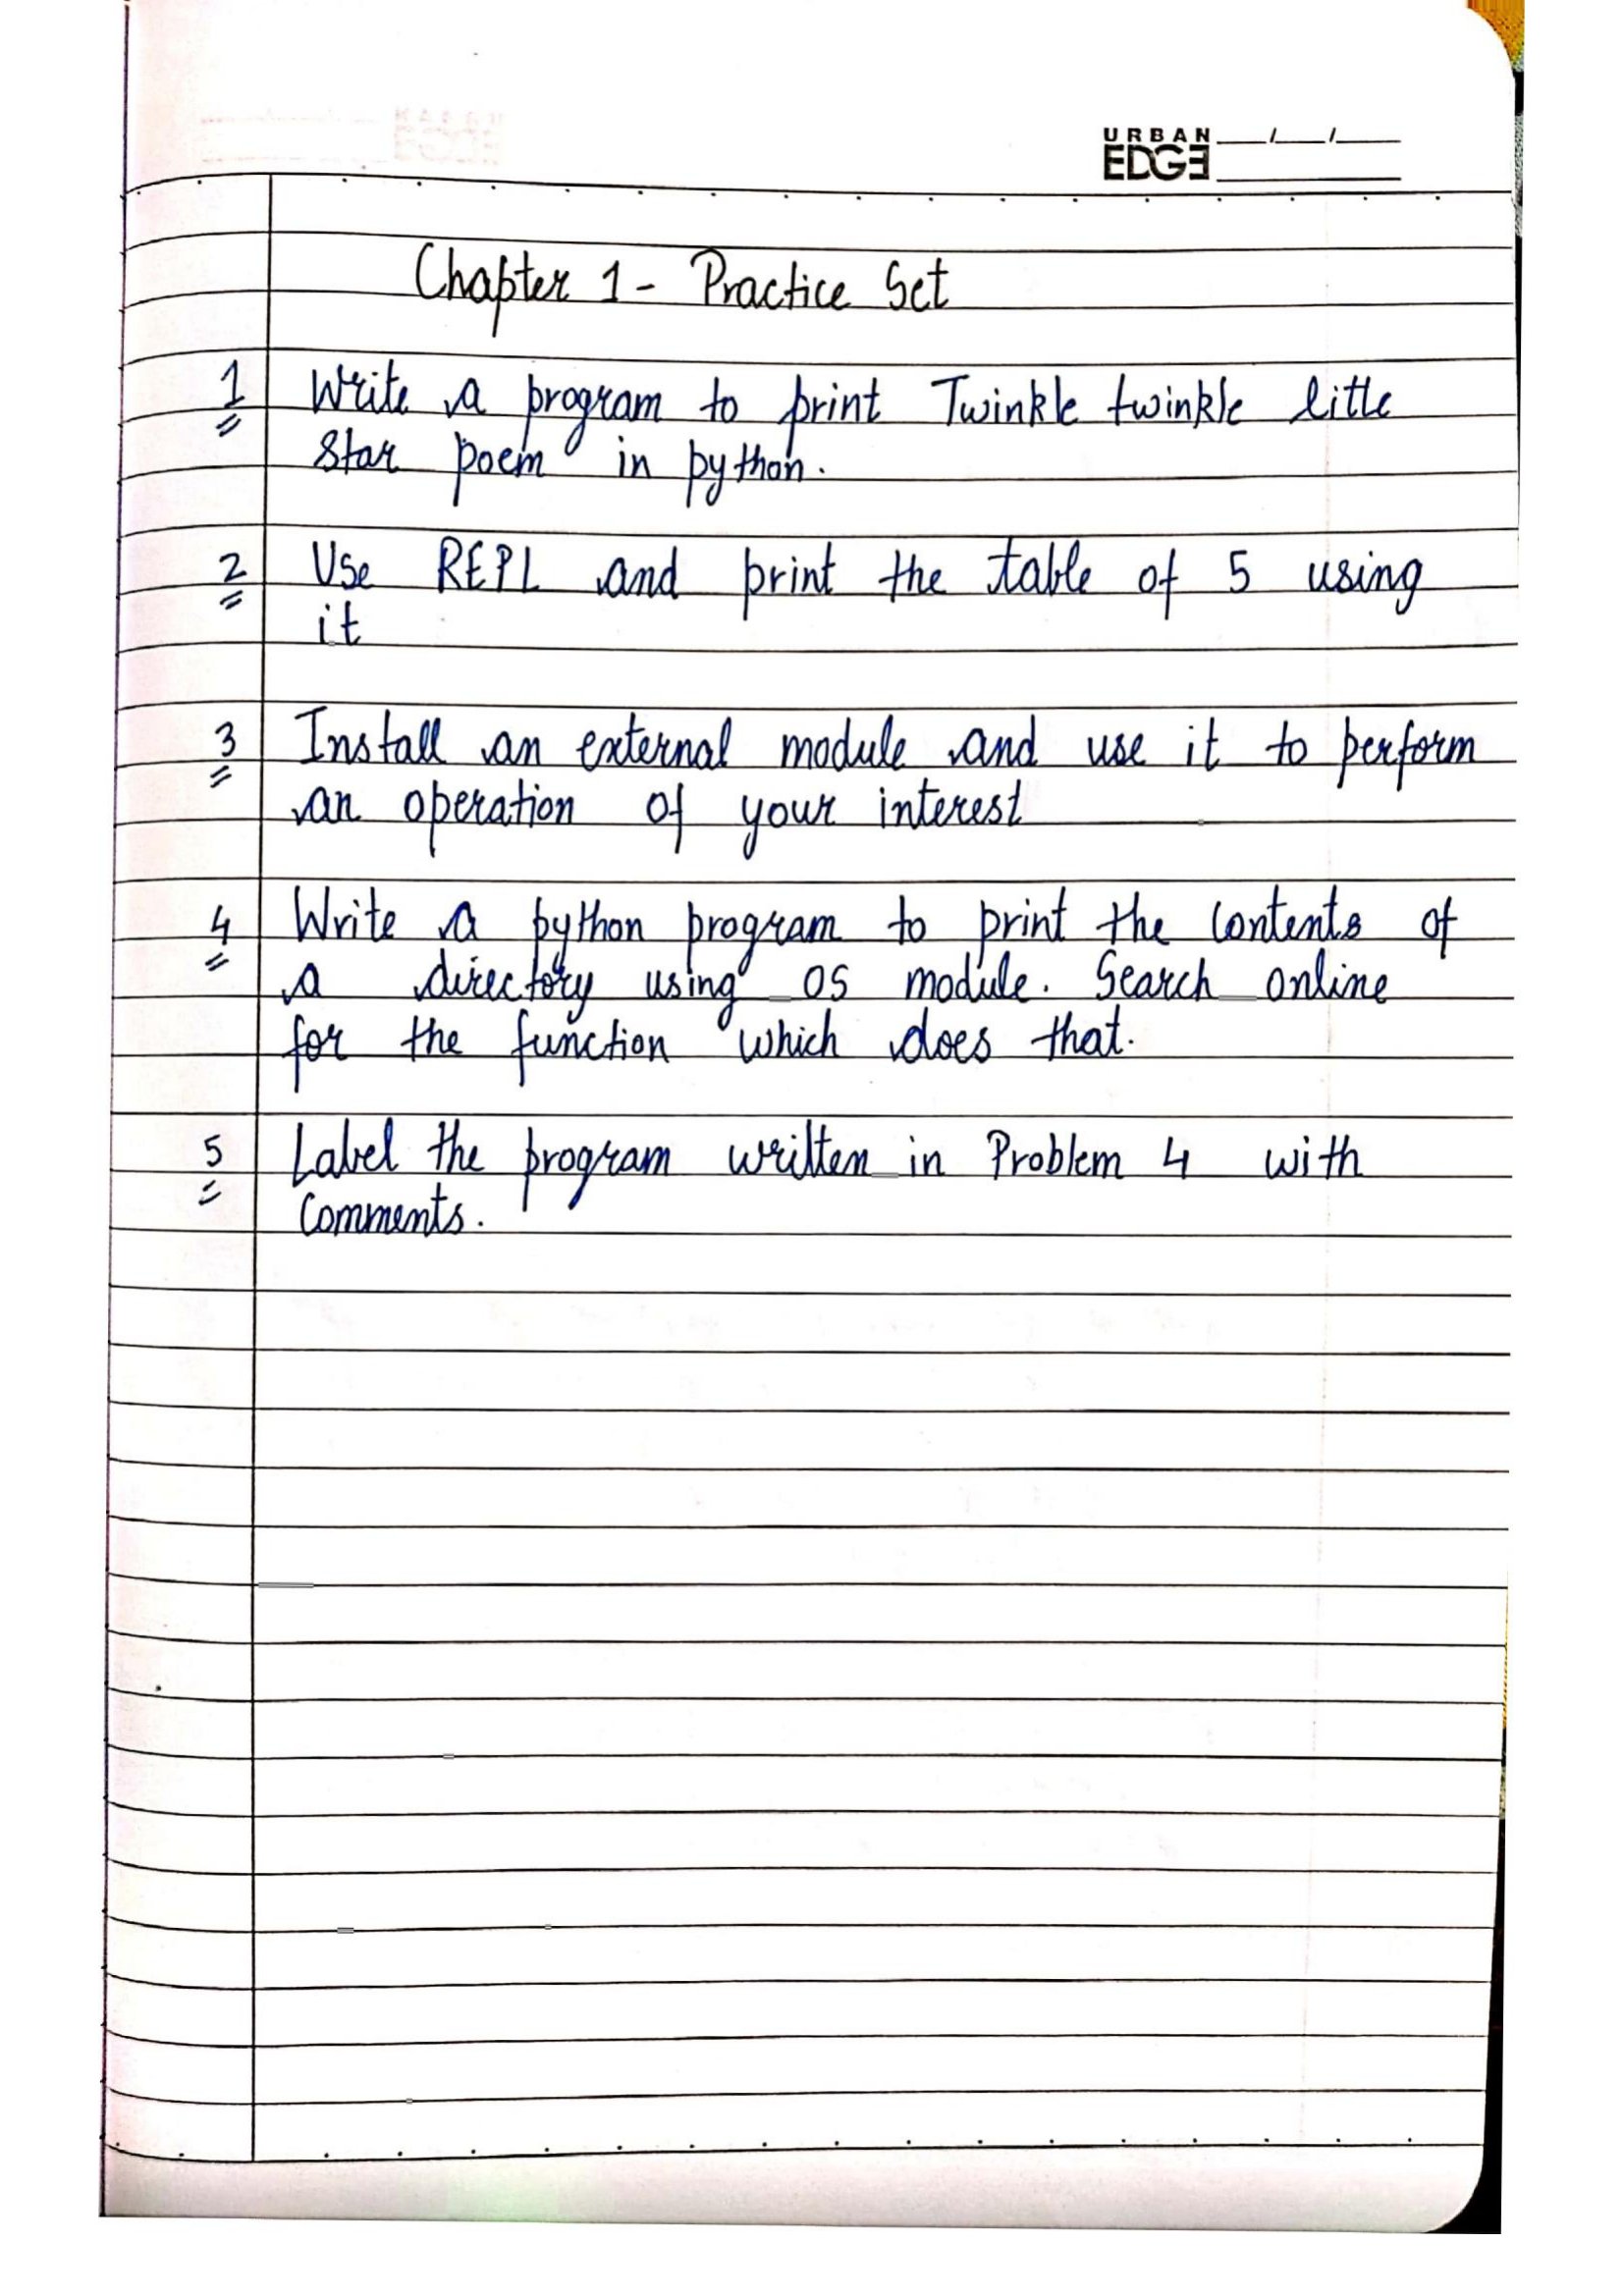 URBAN
EDGE
Chapter 1 - Practice Set
1 Write a program to print Twinkle twinkle little
star poem in python.
2 Use REPL and print the table of 5 using
it
3 Install an external module and use it to perform
an operation of your interest
4 Write a python program to print the contents of
a directory using OS module. Search online
for the function which does that.
5 Label the program written in Problem 4 with
Comments.